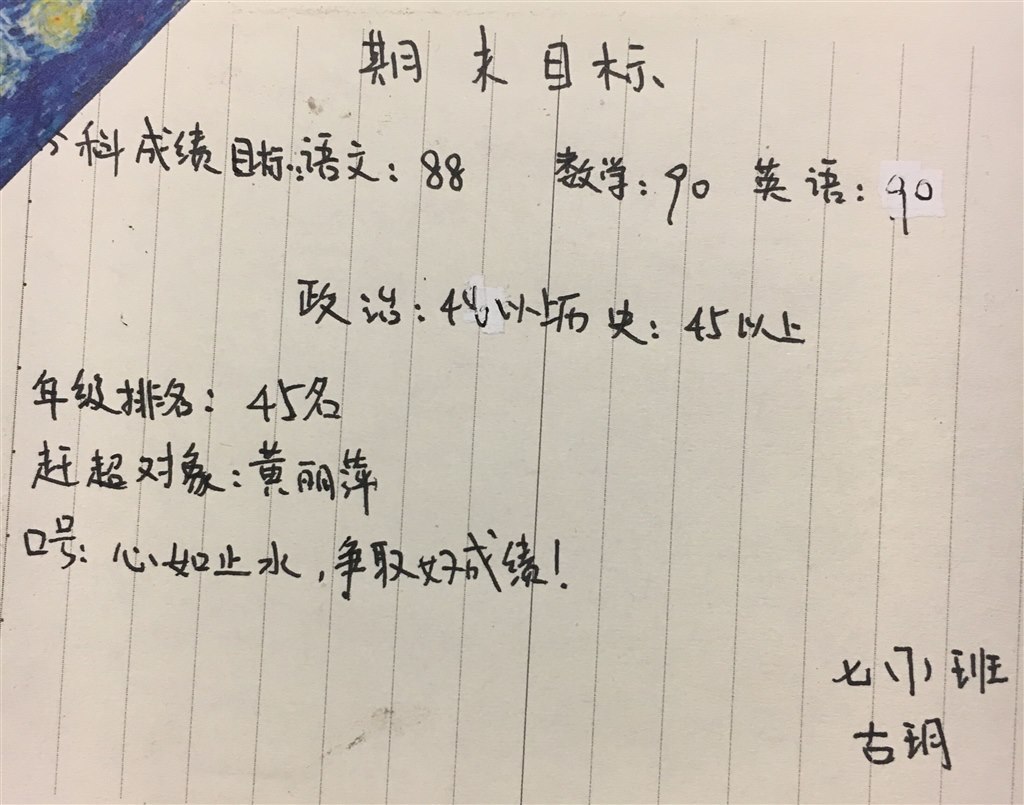 期末目标
分科成绩目标:语文:88 数学:90 英语:90
政治:48以上历史:45以上
年级排名:45名
赶超对象:黄丽萍
口号:心如止水,争取好成绩!
七(7)班
古玥